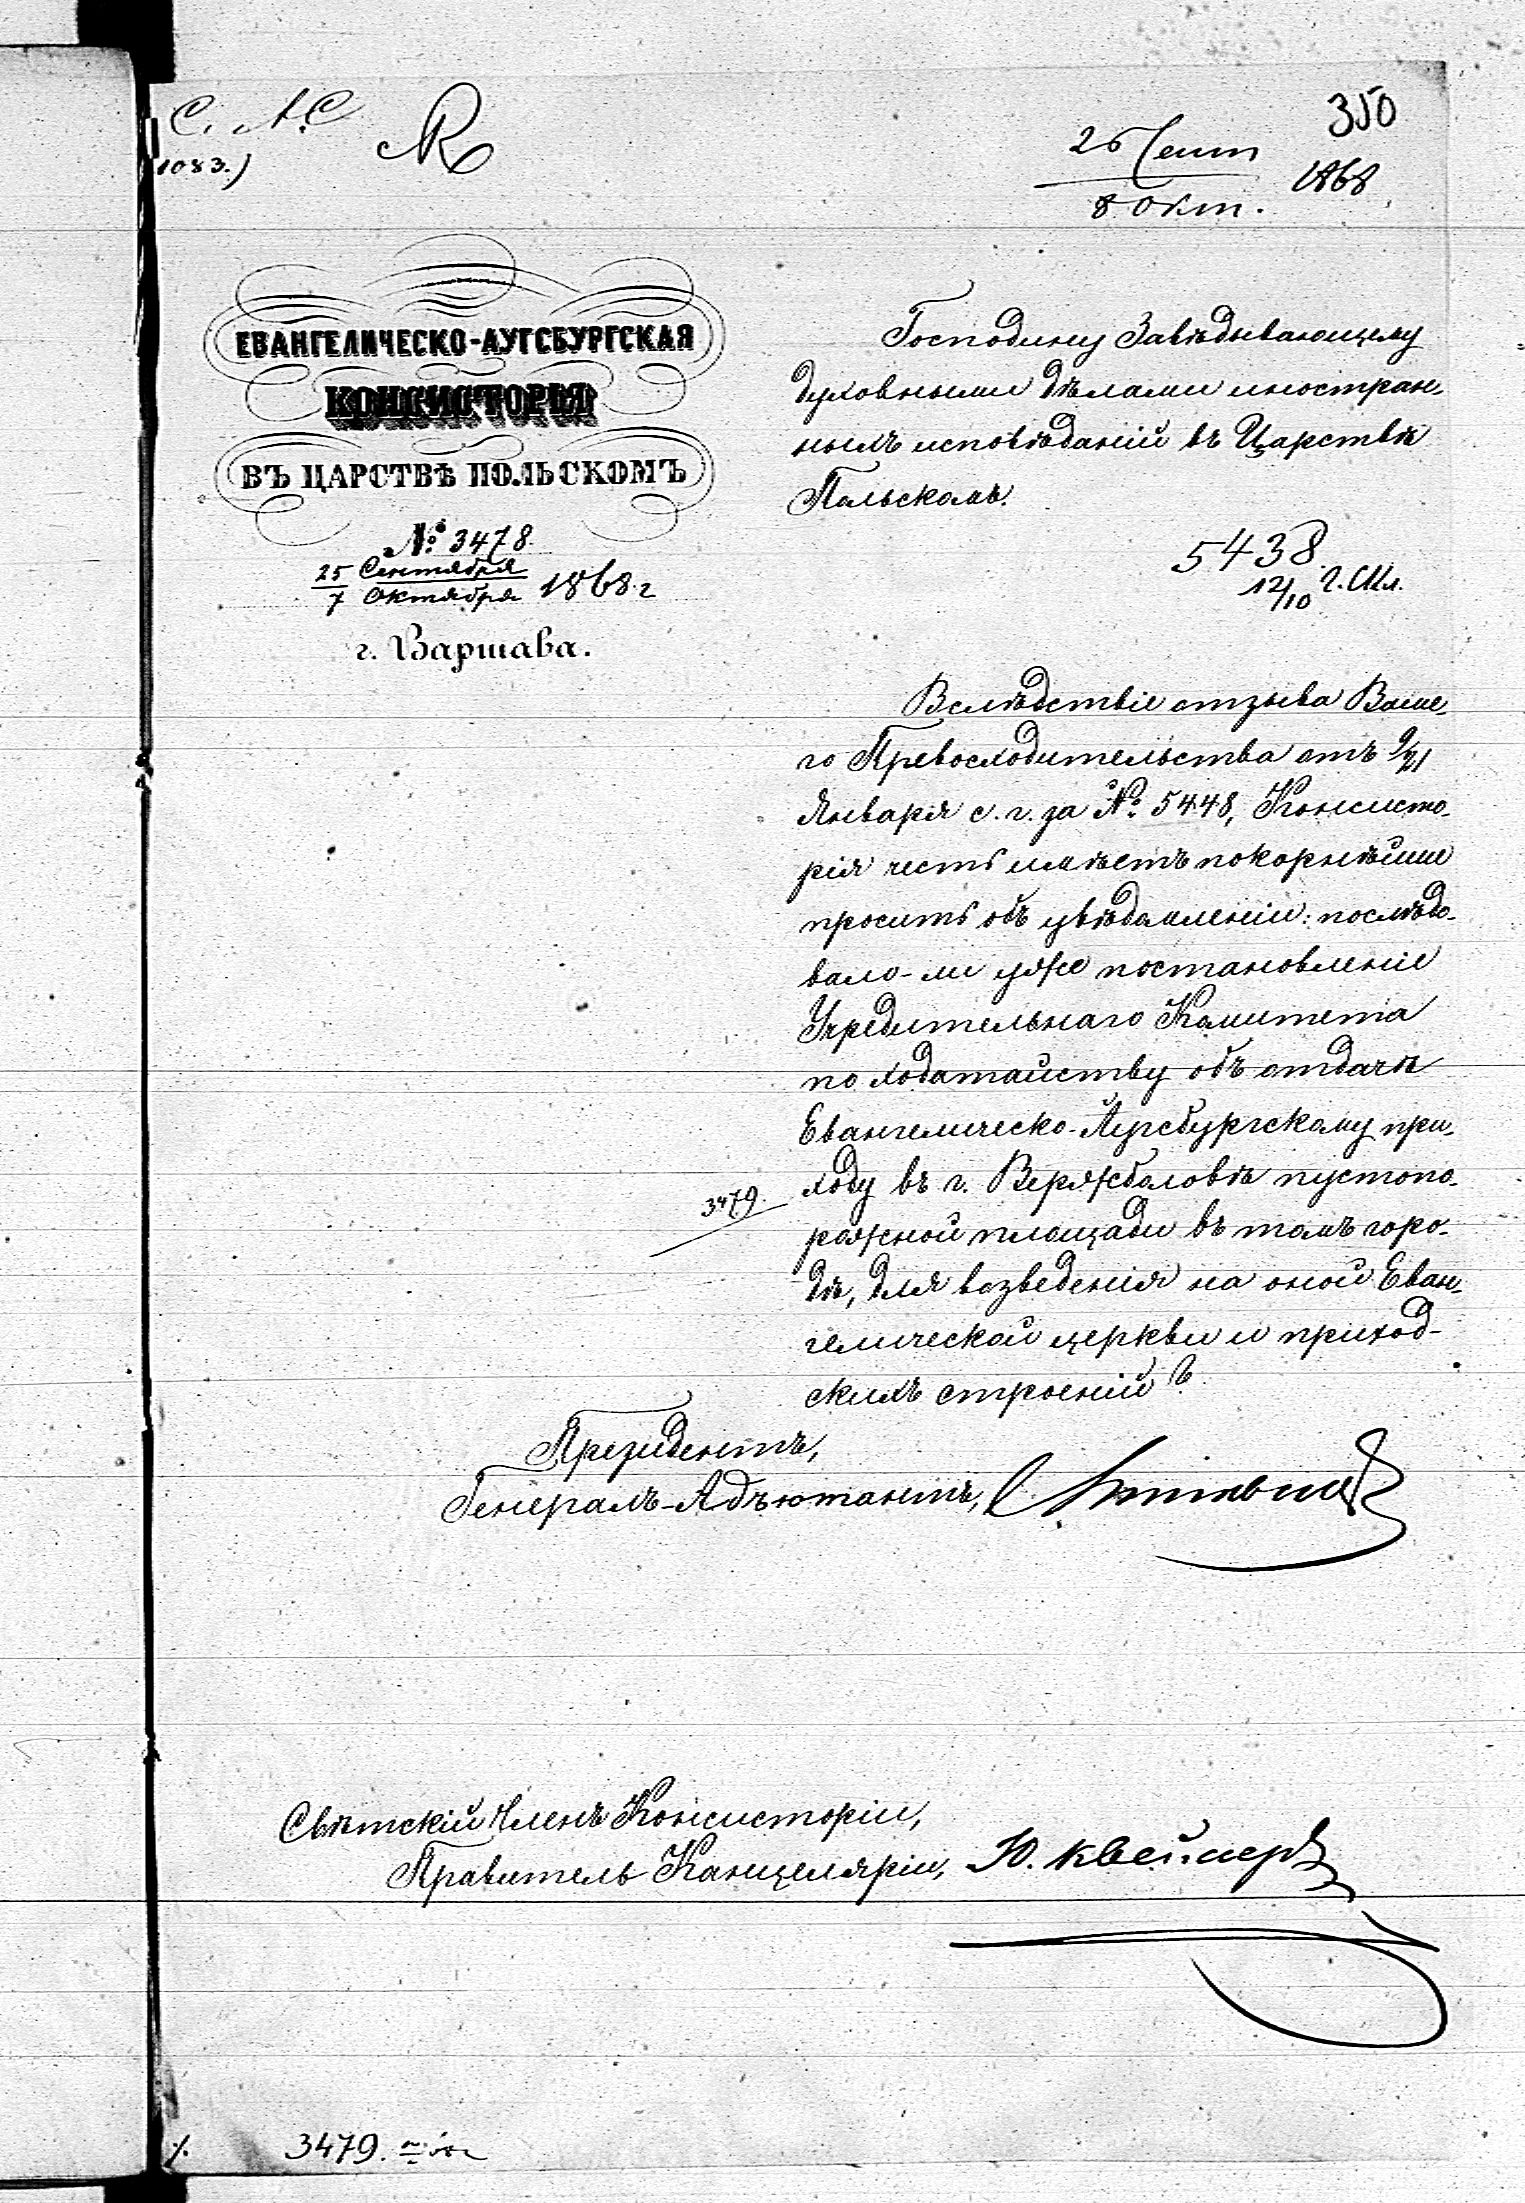 350
С. А. С
1083.)
26 Сент
8 Окт. 1868
ЕВАНГЕЛИЧЕСКО-АУГСБУРГСКАЯ
КОНСИСТОРІЯ
ВЪ ЦАРСТВѢ ПОЛЬСКОМЪ
№ 3478
25 Сентября
7 Октября 1868 г
г. Варшава.
Господину Завѣдывающему
духовными дѣлами иностран-
ныхъ исповѣданій въ Царствѣ
Польскомъ.
5438
12/10
Вслѣдствіе отзыва Ваше-
го Превосходительства отъ 9/21
Января с. г. за № 5448, Консисто-
рія честь имѣетъ покорнѣйше
просить объ увѣдомленіи: послѣдо-
вало-ли уже постановленіе
Учредительнаго Комитета
по ходатайству объ отдачѣ
Евангелическо-Аугсбургскому при-
ходу въ г. Вержболовѣ пустопо-
рожной площади въ томъ горо-
дѣ, для возведенія на оной Еван-
гелической церкви и приход-
скихъ строеній?
3479.
Президентъ,
Генералъ-Адъютантъ,
Свѣтскій Членъ Консисторіи,
Правитель Канцеляріи, Ю. Квейсеръ
3479.